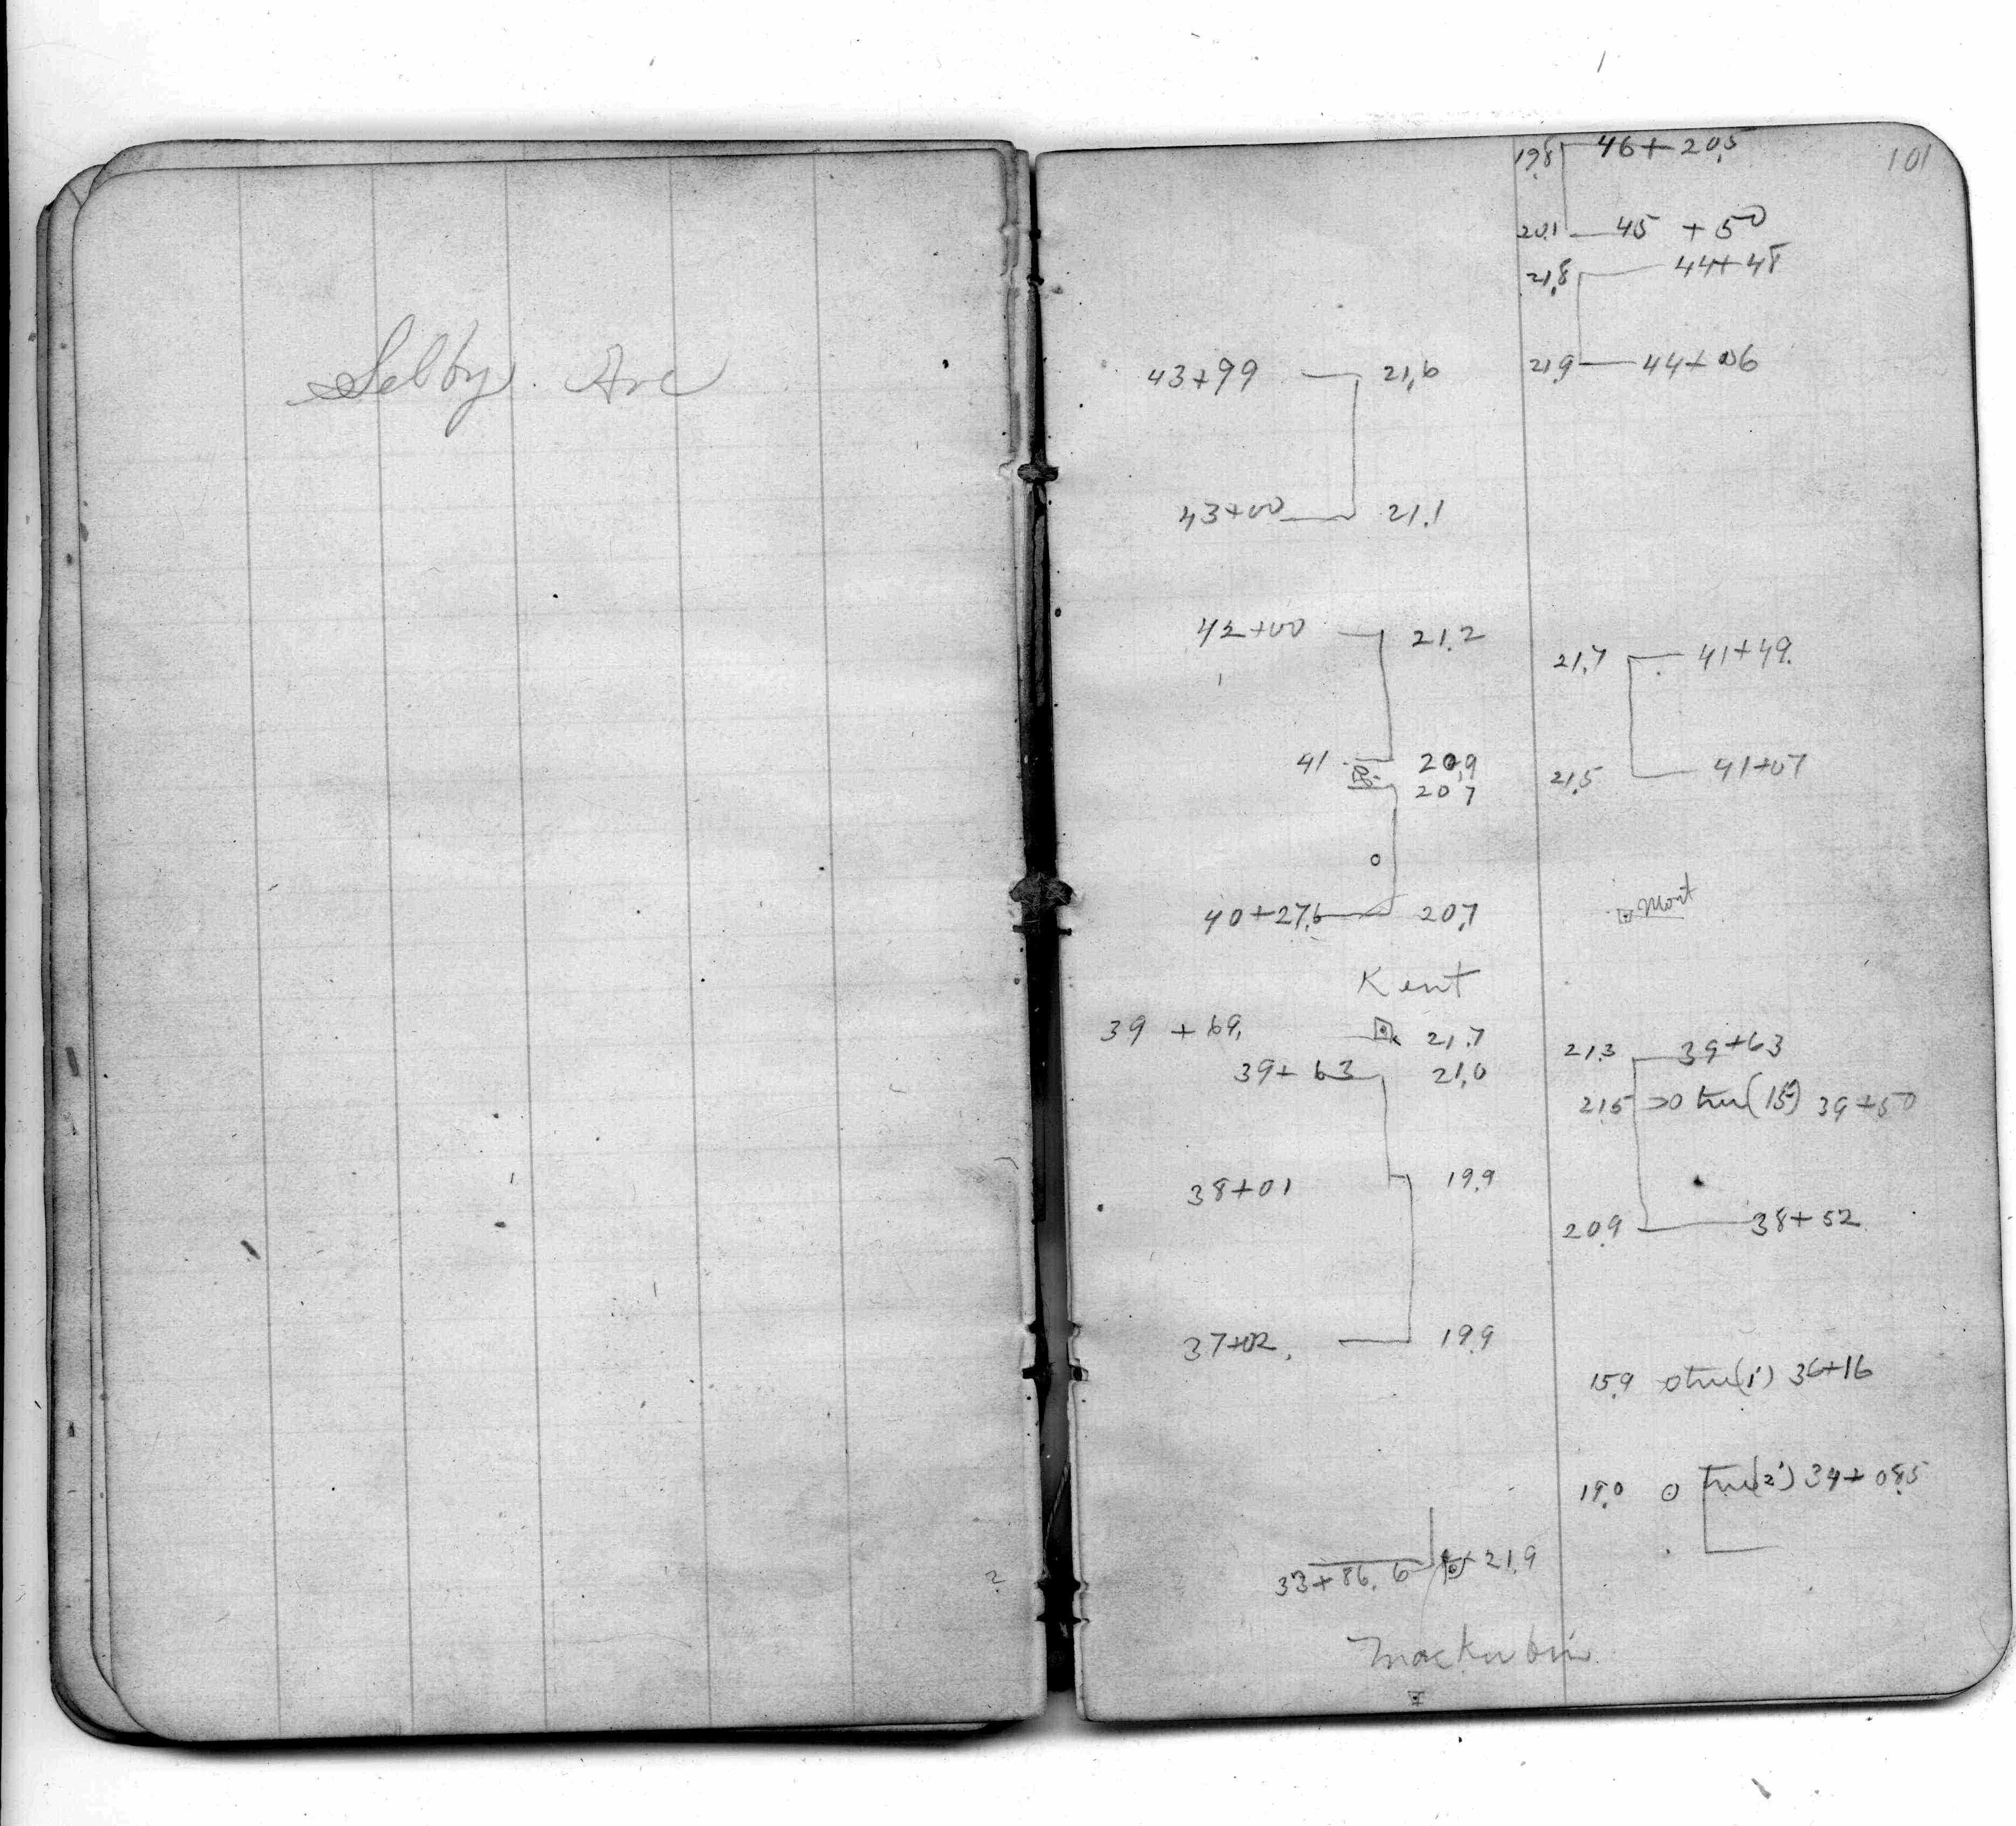 Selby Ave
101
19.8 46+20.5
20.1 45 + 50
21.8 44+48
43+99 21.6 21.9 44+06
43+00 21.1
42+00 21.2 21.7 41+49.
41 20.9 21.5 41+07
20 7
40+27.6 20.7 Mort
Kent
39 + 69. 21.7 21.3 39+63
39+63 21.0 21.5 tree (15") 39+50
38+01 19.9 20.9 38+52
37+02. 19.9
15.9 tree (1') 36+16
19.0 tree (2') 34+08.5
33+86.6 21.9
Mackubin